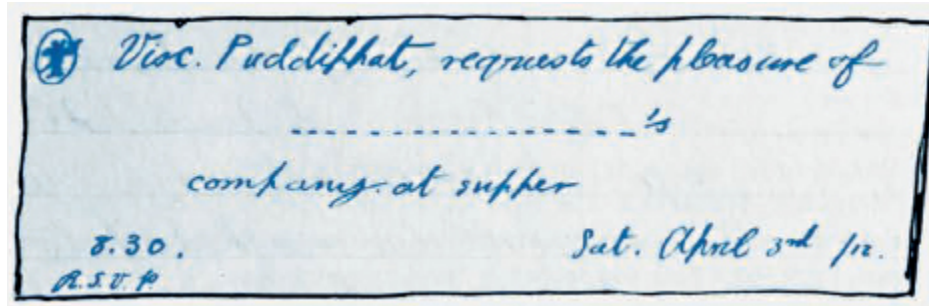 Visc. Puddiphat, requests the pleasure of
------------------'s
company at supper
8.30. Sat. April 3rd /12.
R.S.V.P